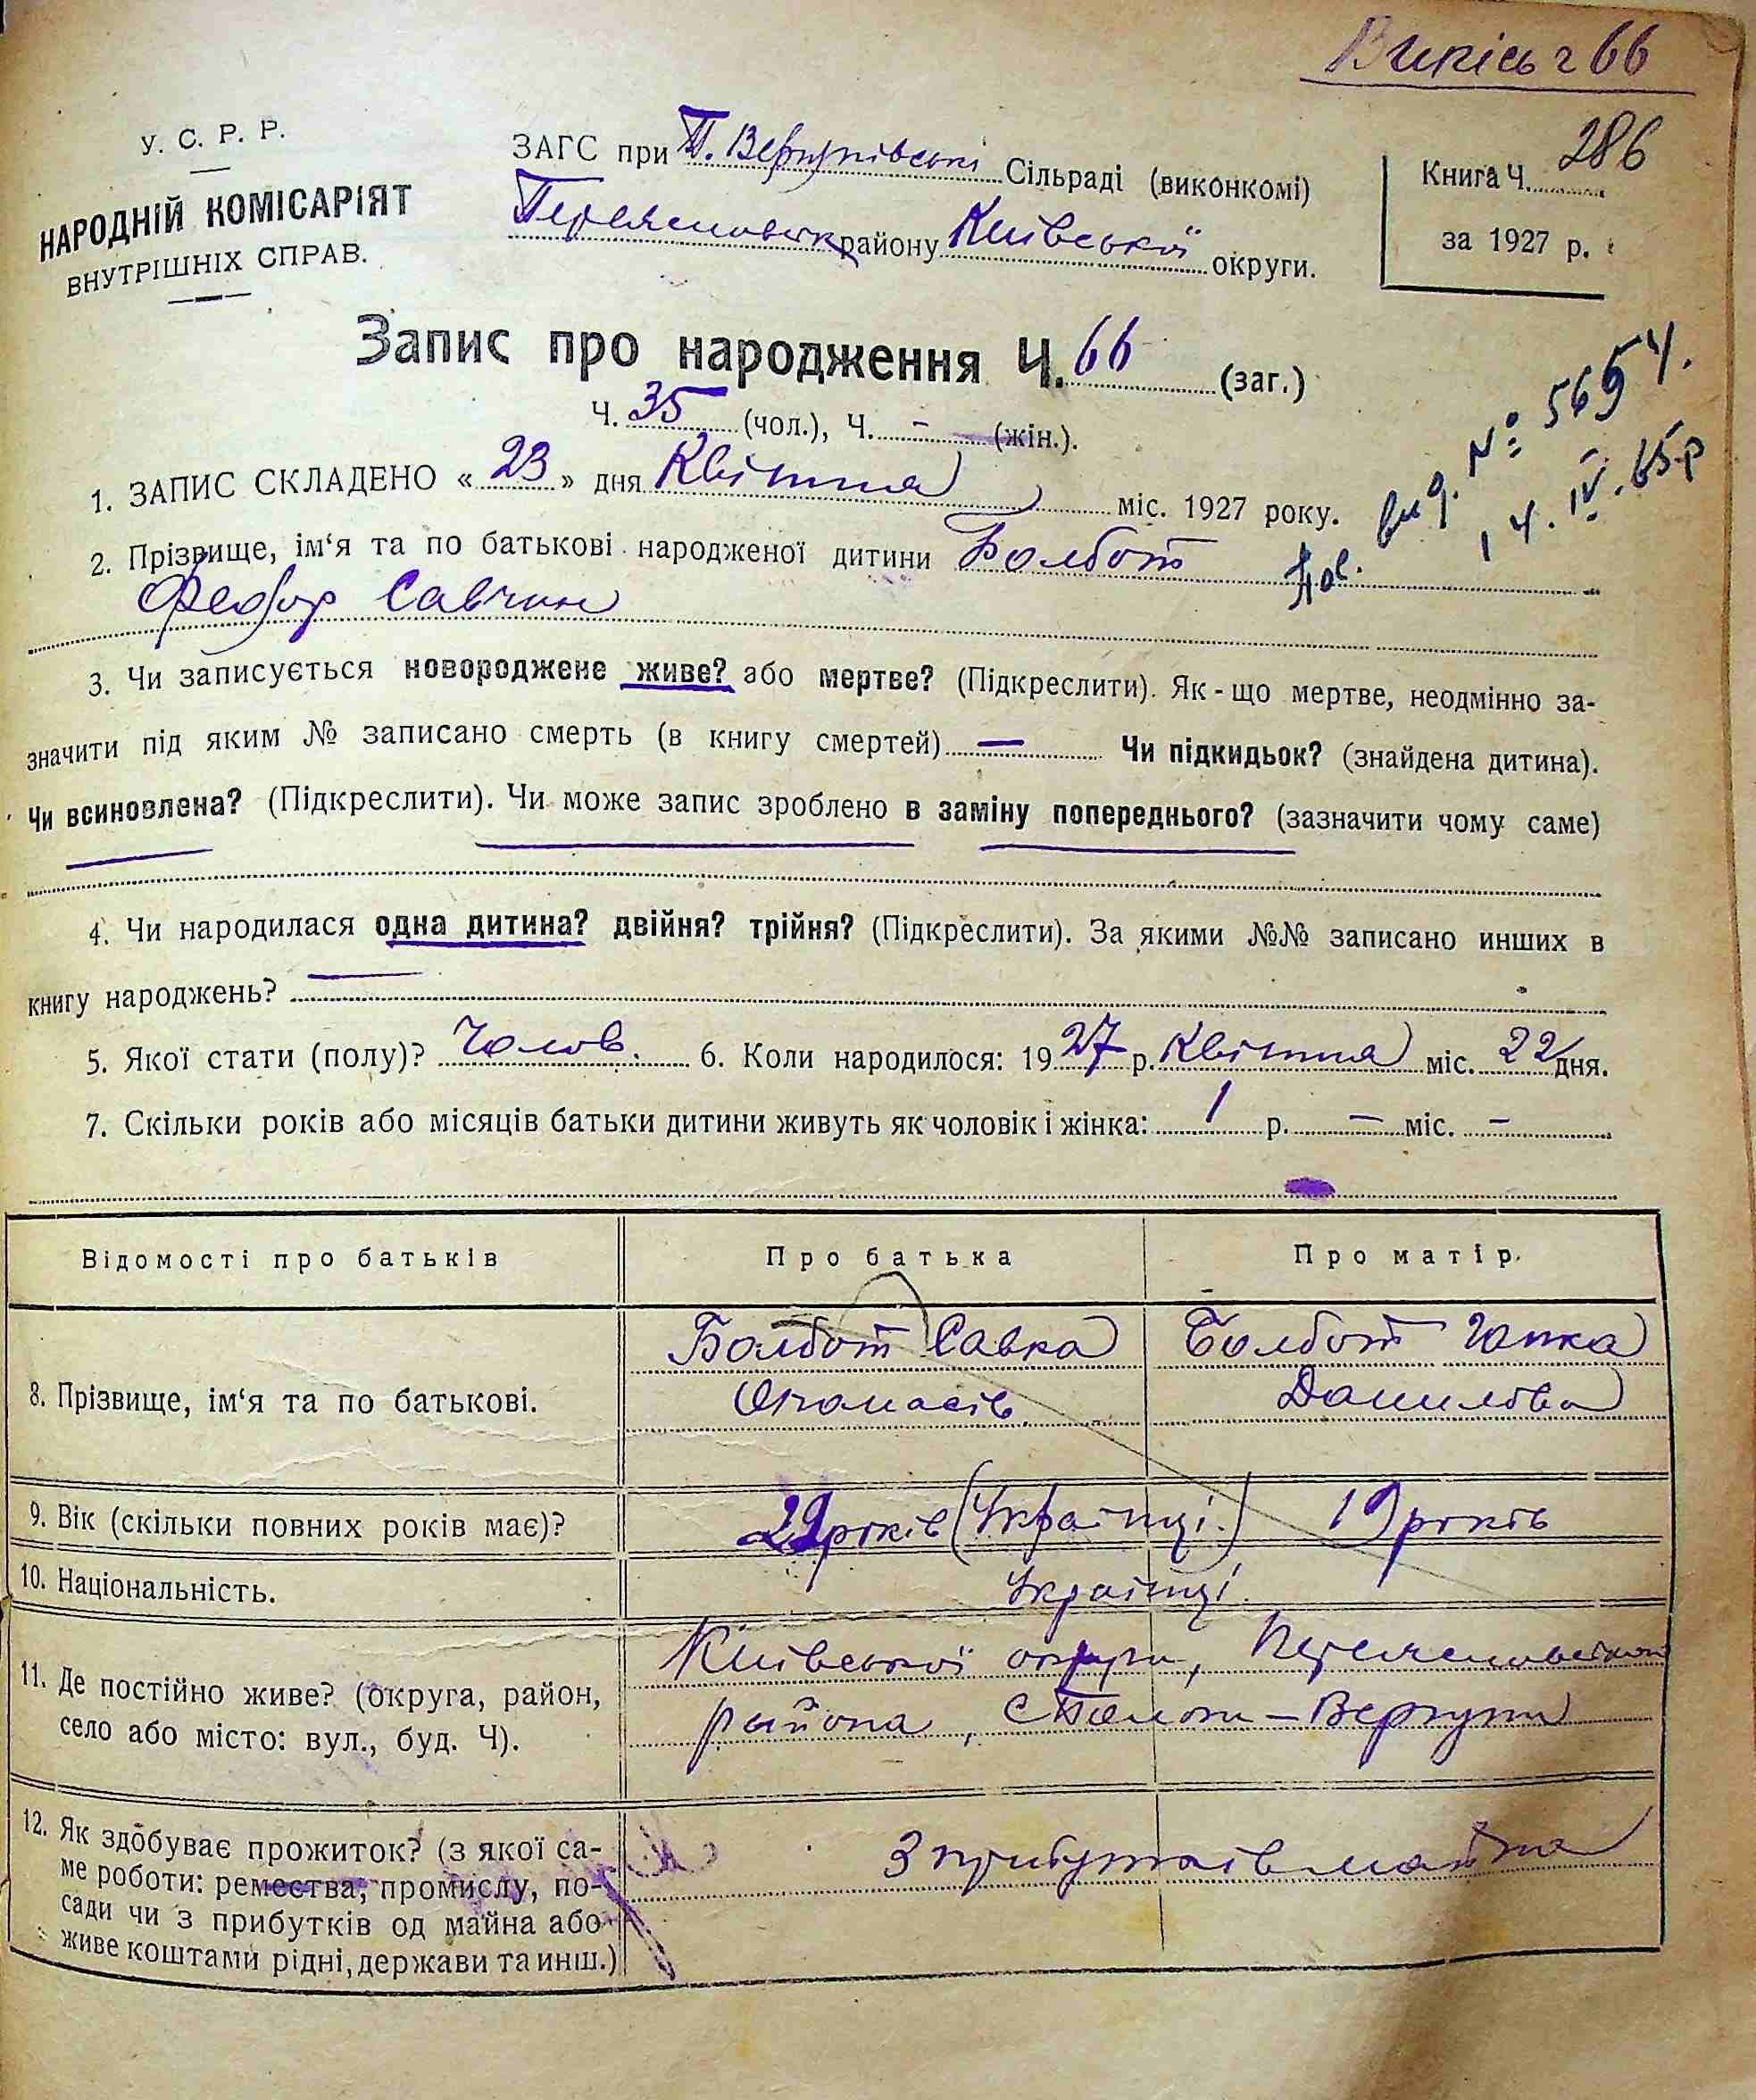 Випісь ч 66
У. С. Р. Р.
НАРОДНІЙ КОМІСАРІЯТ
ВНУТРІШНІХ СПРАВ.
ЗАГС при П. Вергунівські Сільраді (виконкомі)
Переяславськ району Київської округи.
Книга Ч. 286
за 1927 р.
Запис про народження Ч. 66 (заг.)
Ч. 35 (чол.), Ч. - (жін.).
1. ЗАПИС СКЛАДЕНО « 23 » дня Квітня міс. 1927 року.
№ 5695
14. IV. 65 р
2. Прізвище, ім‘я та по батькові народженої дитини Болбот
Федор Савчин
3. Чи записується новороджене живе? або мертве? (Підкреслити). Як-що мертве, неодмінно за-
значити під яким № записано смерть (в книгу смертей) — Чи підкидьок? (знайдена дитина).
Чи всиновлена? (Підкреслити). Чи може запис зроблено в заміну попереднього? (зазначити чому саме)
4. Чи народилася одна дитина? двійня? трійня? (Підкреслити). За якими №№ записано инших в
книгу народжень? —
5. Якої стати (полу)? Чолов. 6. Коли народилося: 1927 р. Квітня міс. 22 дня.
7. Скільки років або місяців батьки дитини живуть як чоловік і жінка: 1 р. — міс. —
Відомості про батьків Про батька Про матір.
8. Прізвище, ім‘я та по батькові. Болбот Савка Опанасів Болбот Гапка Данилова
9. Вік (скільки повних років має)? 29 років (Українці.) 19 років
10. Національність. Українці.
11. Де постійно живе? (округа, район,
село або місто: вул., буд. Ч).
Київської округи, Переяславського
района, с Полого-Вергуни
12. Як здобуває прожиток? (з якої са-
ме роботи: ремества, промислу, по-
сади чи з прибутків од майна або
живе коштами рідні, держави та инш.)
З прибутків майна